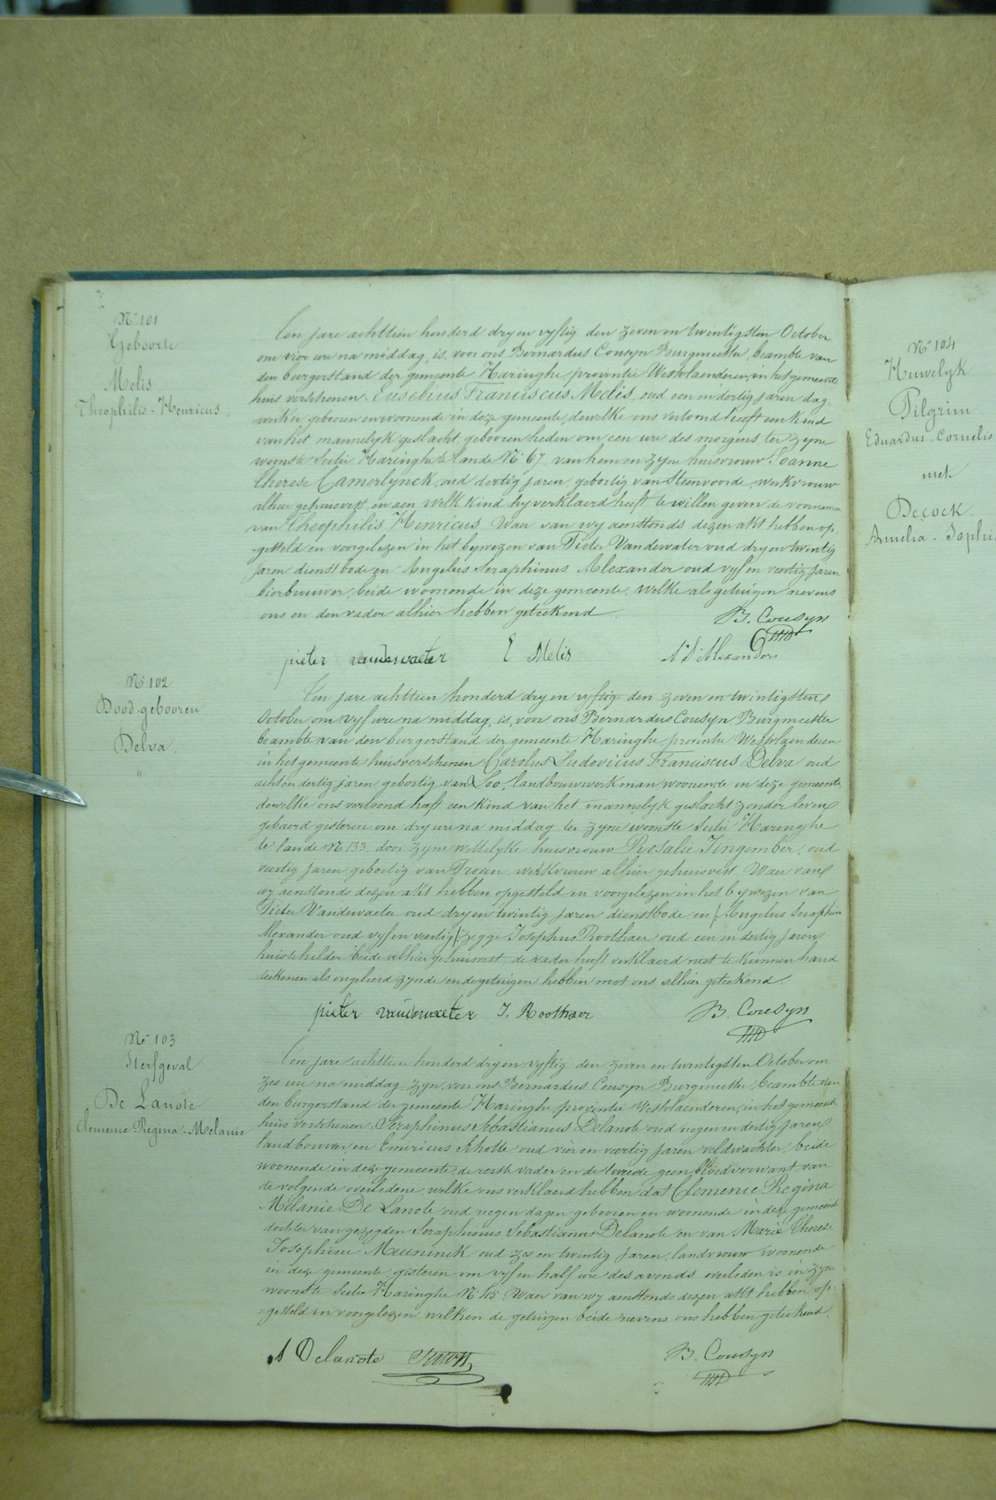 N° 101
Geboorte
Melis
Theophilis-Henricus.
Een jare achttien honderd dry en vyftig den zeven en twintigsten October
om vier ure na middag, is, voor ons Bernardus Cousyn Burgmeester, beambte van
den burgerstand der gemeente Haringhe provintie Westvlaenderen, in het gemeente
huis verschenen Eusebius Franciscus Melis, oud een en dertig jaren dag
werker, geboren en woonende in deze gemeente, dewelke ons vertoond heeft een kind
van het mannelyk geslacht, gebooren heden om een ure des morgens ter zyne
woonste Sectie Haringhe te lande N° 67 van hem en zyne huisvrouw Joanne
Therese Camerlynck, oud dertig jaren, geboortig van Steenvoorde, werkvrouw
alhier gehuisvest, en aen welk kind hy verklaerd heeft te willen geven de voornamen
van Theophilis Henricus. Waer van wy aenstonds dezen akt hebben op-
gesteld en voorgelezen in het bywezen van Pieter Vandewater oud dry en twintig
jaren dienstbode en Angelus Seraphinus Alexander oud vyf en veertig jaren
bierbrouwer, beide woonende in deze gemeente. Welke als getuigen nevens
ons en den vader alhier hebben geteekend.
B. Cousyn
pieter vandewaeter E Melis A S Alexander
N° 102
Dood-gebooren
Delva.
"
Een jare achttien honderd dry en vyftig den zeven en twintigsten
October om vyf ure na middag, is, voor ons Bernardus Cousyn Burgmeester
beambte van den burgerstand der gemeente Haringhe provintie Westvlaenderen
in het gemeente huis verschenen Carolus Ludovicus Franciscus Delva oud
acht en dertig jaren geboortig van Loo, landbouwwerkman woonende in deze gemeente
dewelke ons vertoond heeft een kind van het mannelyk geslacht zonder leven
gebaerd gisteren om dry ure na middag ter zyne woonste Sectie Haringhe
te lande N° 133 door zyne wettelyke huisvrouw Rosalie Jingember, oud
veertig jaren geboortig van werkvrouw alhier gehuisvest. Waer van
wy aenstonds dezen akt hebben opgesteld en voorgelezen in het bywezen van
Pieter Vandewaeter oud dry en twintig jaren dienstbode en Angelus Seraphin
Alexander oud vyf en veertig zegge Josephus Roothaer oud een en dertig jaren
huisschilder beide alhier gehuisvest. de vader heeft verklaerd niet te kunnen hand
teekenen als ongeleerd zynde en de getuigen hebben met ons alhier geteekend.
pieter vandewaeter J. Roothaer B. Cousyn
N° 103
Sterfgeval
De Lanote
Clemenie Regina-Melanie
Een jare achttien honderd dry en vyftig den zeven en twintigsten October om
zes ure na middag zyn, voor ons Bernardus Cousyn Burgmeester, beambte van
den burgerstand der gemeente Haringhe provintie Westvlaenderen, in het gemeente
huis verschenen Seraphinus Sebastianus Delanote oud negen en dertig jaren
landbouwer en Emericus Scholte oud vier en veertig jaren veldwachter, beide
woonende in deze gemeente, de eerste vader en de tweede geen bloedverwant van
de volgende overledene, welke ons verklaerd hebben dat Clemenie Regina
Melanie De Lanote oud negen dagen gebooren en woonende in deze gemeente
dochter van gezegden Seraphinus Sebastianus Delanote en van Marie Therese
Josephine Meuninck oud zes en twintig jaren, landvrouw woonende
in deze gemeente, gisteren om vyf en half ure des avonds overleden is in zyn
woonste Sectie Haringhe N° 115. Waer van wy aenstonds dezen akt hebben op-
gesteld en voorgelezen welken de getuigen beide nevens ons hebben geteekend.
S Delanote B. Cousyn
N° 104
Huwelyk
Pilgrim
Eduardus-Cornelis
met
Decock
Amelia-Sophi